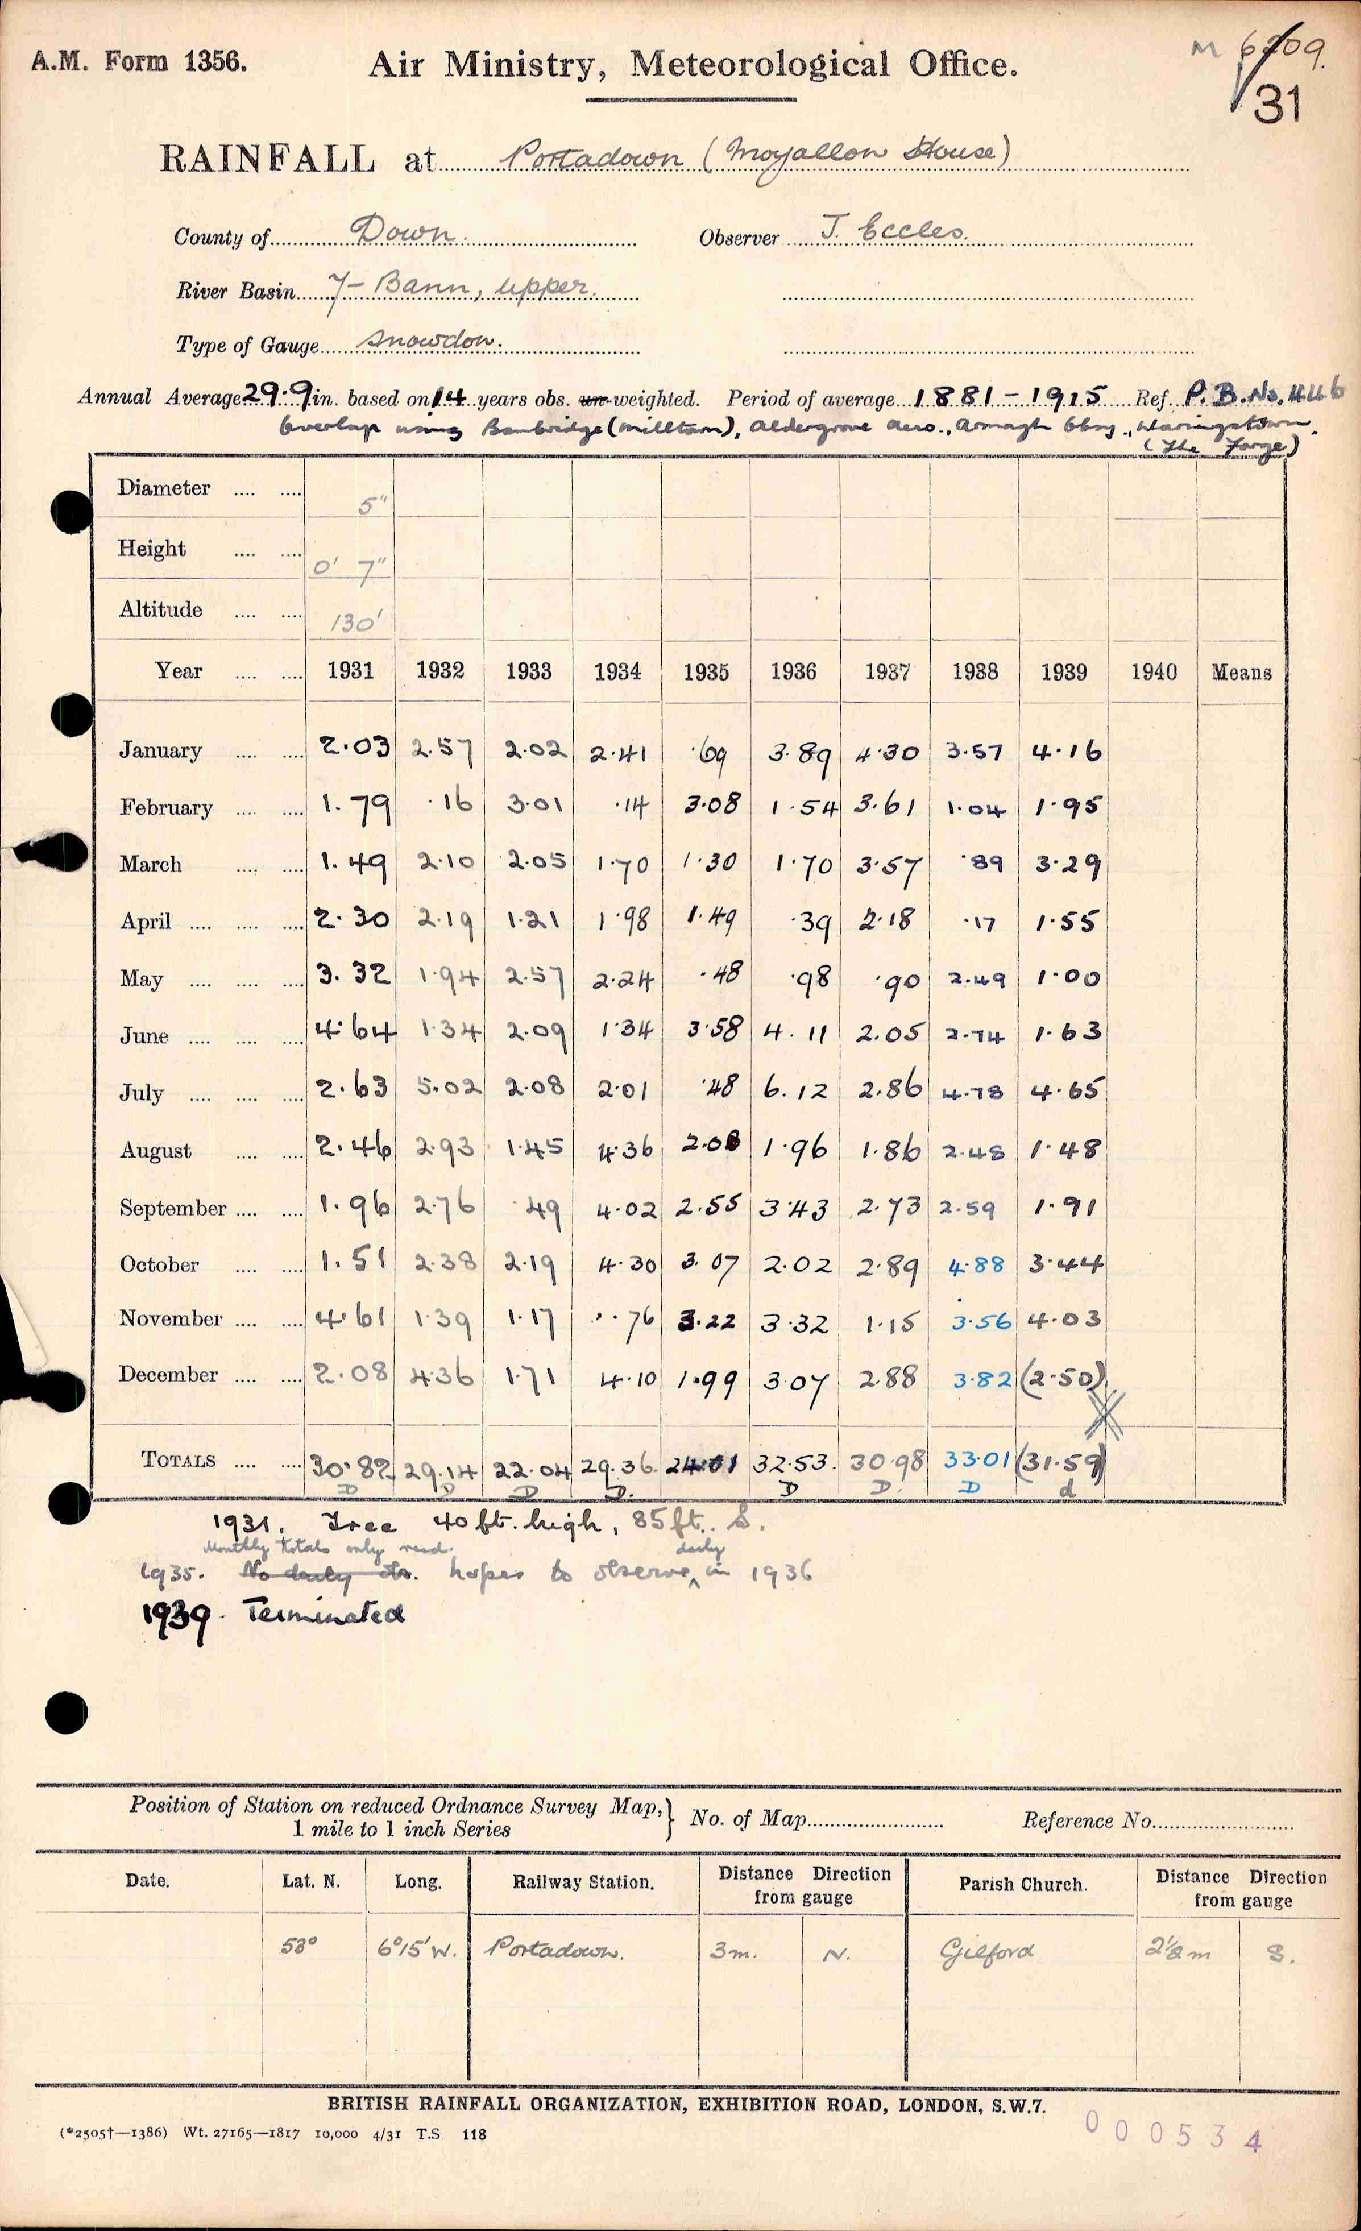 A.M. Form 1356.
Air Ministry, Meteorological Office.
M 6209.
31
RAINFALL at Portadown (Moyallon House)
County of Down. Observer J. Eccles.
River Basin 7- Bann, Upper.
Type of Gauge Snowdon.
Annual Average 29.9 in. based on 14 years obs. un-weighted. Period of average 1881-1915 Ref. P.B. No. 446
Overlap using Banbridge (Milltown), Aldergrove Aero., Armagh Obsy., Waringstown.
(The Forge)
Diameter .... .... 5"
Height .... .... 0' 7"
Altitude .... .... 130'
Year .... .... 1931 1932 1933 1934 1935 1936 1937 1938 1939 1940 Means
January .... .... 2.03 2.57 2.02 2.41 .69 3.89 4.30 3.57 4.16
February .... .... 1.79 .16 3.01 .14 3.08 1.54 3.61 1.04 1.95
March .... .... 1.49 2.10 2.05 1.70 1.30 1.70 3.57 .89 3.29
April .... .... .... 2.30 2.19 1.21 1.98 1.49 .39 2.18 .17 1.55
May .... .... .... 3.32 1.94 2.57 2.24 .48 .98 .90 2.49 1.00
June .... .... .... 4.64 1.34 2.09 1.34 3.58 4.11 2.05 2.74 1.63
July .... .... .... 2.63 5.02 2.08 2.01 .48 6.12 2.86 4.78 4.65
August .... .... 2.46 2.93 1.45 4.36 2.08 1.96 1.86 2.48 1.48
September .... .... 1.96 2.76 .49 4.02 2.55 3.43 2.73 2.59 1.91
October .... .... 1.51 2.38 2.19 4.30 3.07 2.02 2.89 4.88 3.44
November .... .... 4.61 1.39 1.17 .76 3.22 3.32 1.15 3.56 4.03
December .... .... 2.08 4.36 1.71 4.10 1.99 3.07 2.88 3.82 (2.50)
TOTALS .... .... 30.82 29.14 22.04 29.36 24.01 32.53 30.98 33.01 (31.59)
D D D D. D D. D d
1931. Tree 40 ft. high, 85 ft. S.
Monthly totals only read. daily
1935. No daily obs. hopes to observe in 1936
1939. Terminated
Position of Station on reduced Ordnance Survey Map, } No. of Map Reference No.
1 mile to 1 inch Series
Date. Lat. N. Long. Railway Station. Distance Direction from gauge Parish Church. Distance Direction from gauge
53° 6°15' W. Portadown. 3m. N. Gilford 2½m S.
BRITISH RAINFALL ORGANIZATION, EXHIBITION ROAD, LONDON, S.W.7.
(*2505†—1386) Wt. 27165—1817 10,000 4/31 T.S 118
000534